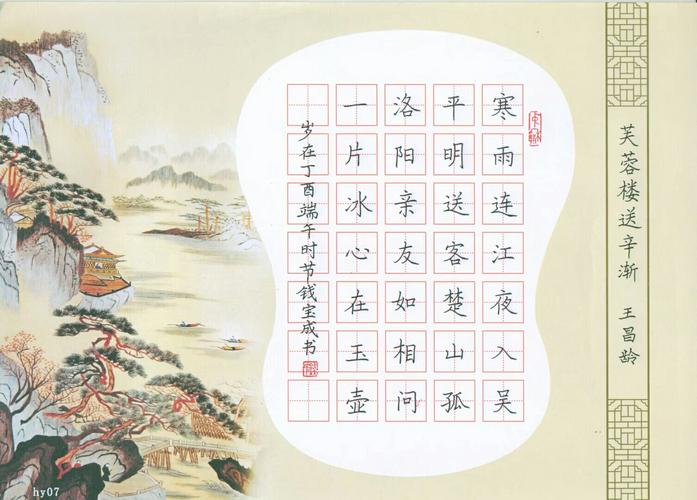 芙蓉楼送辛渐 王昌龄
寒雨连江夜入吴
平明送客楚山孤
洛阳亲友如相问
一片冰心在玉壶
岁在丁酉端午时节钱宝成书
hy07